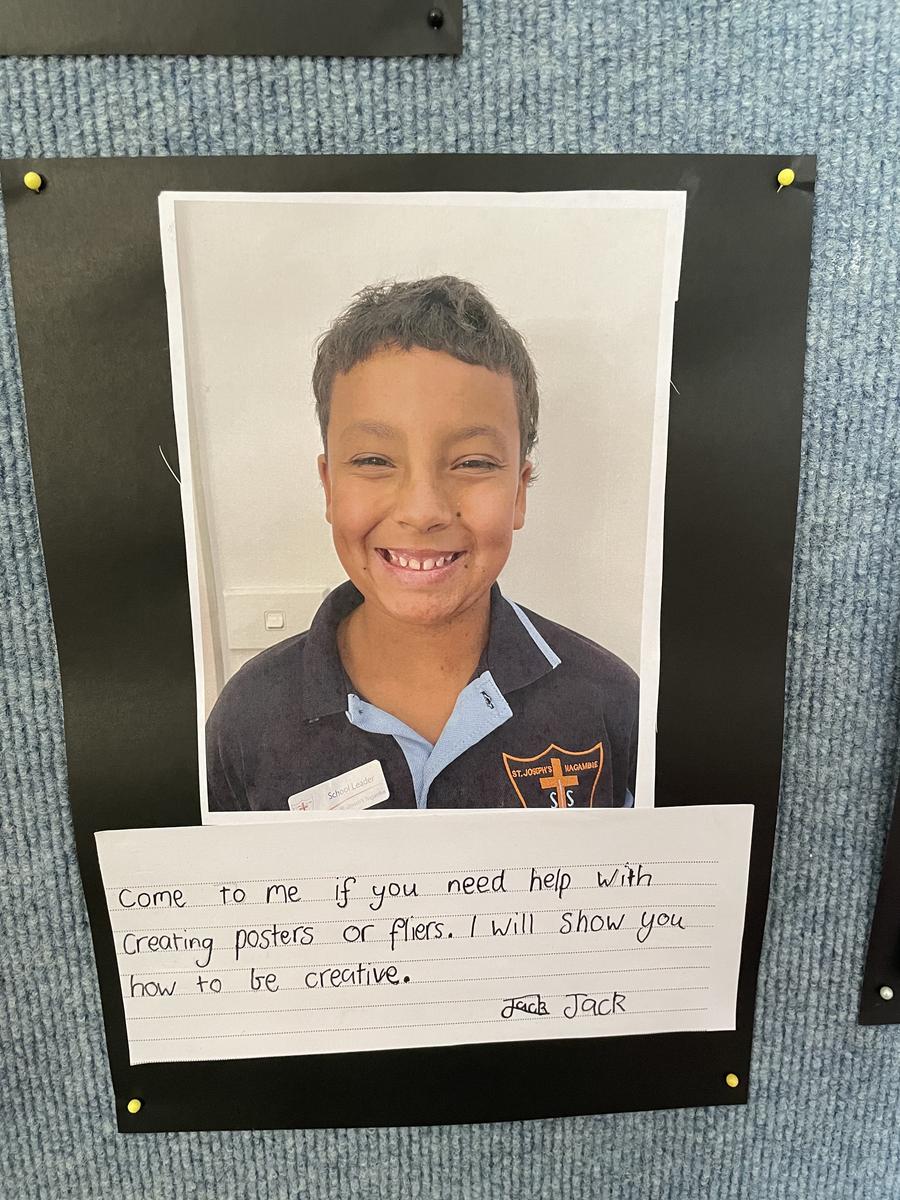 School Leader
ST. JOSEPH'S NAGAMBIE
S S
Come to me if you need help with
creating posters or fliers. I will show you
how to be creative.
Jack Jack